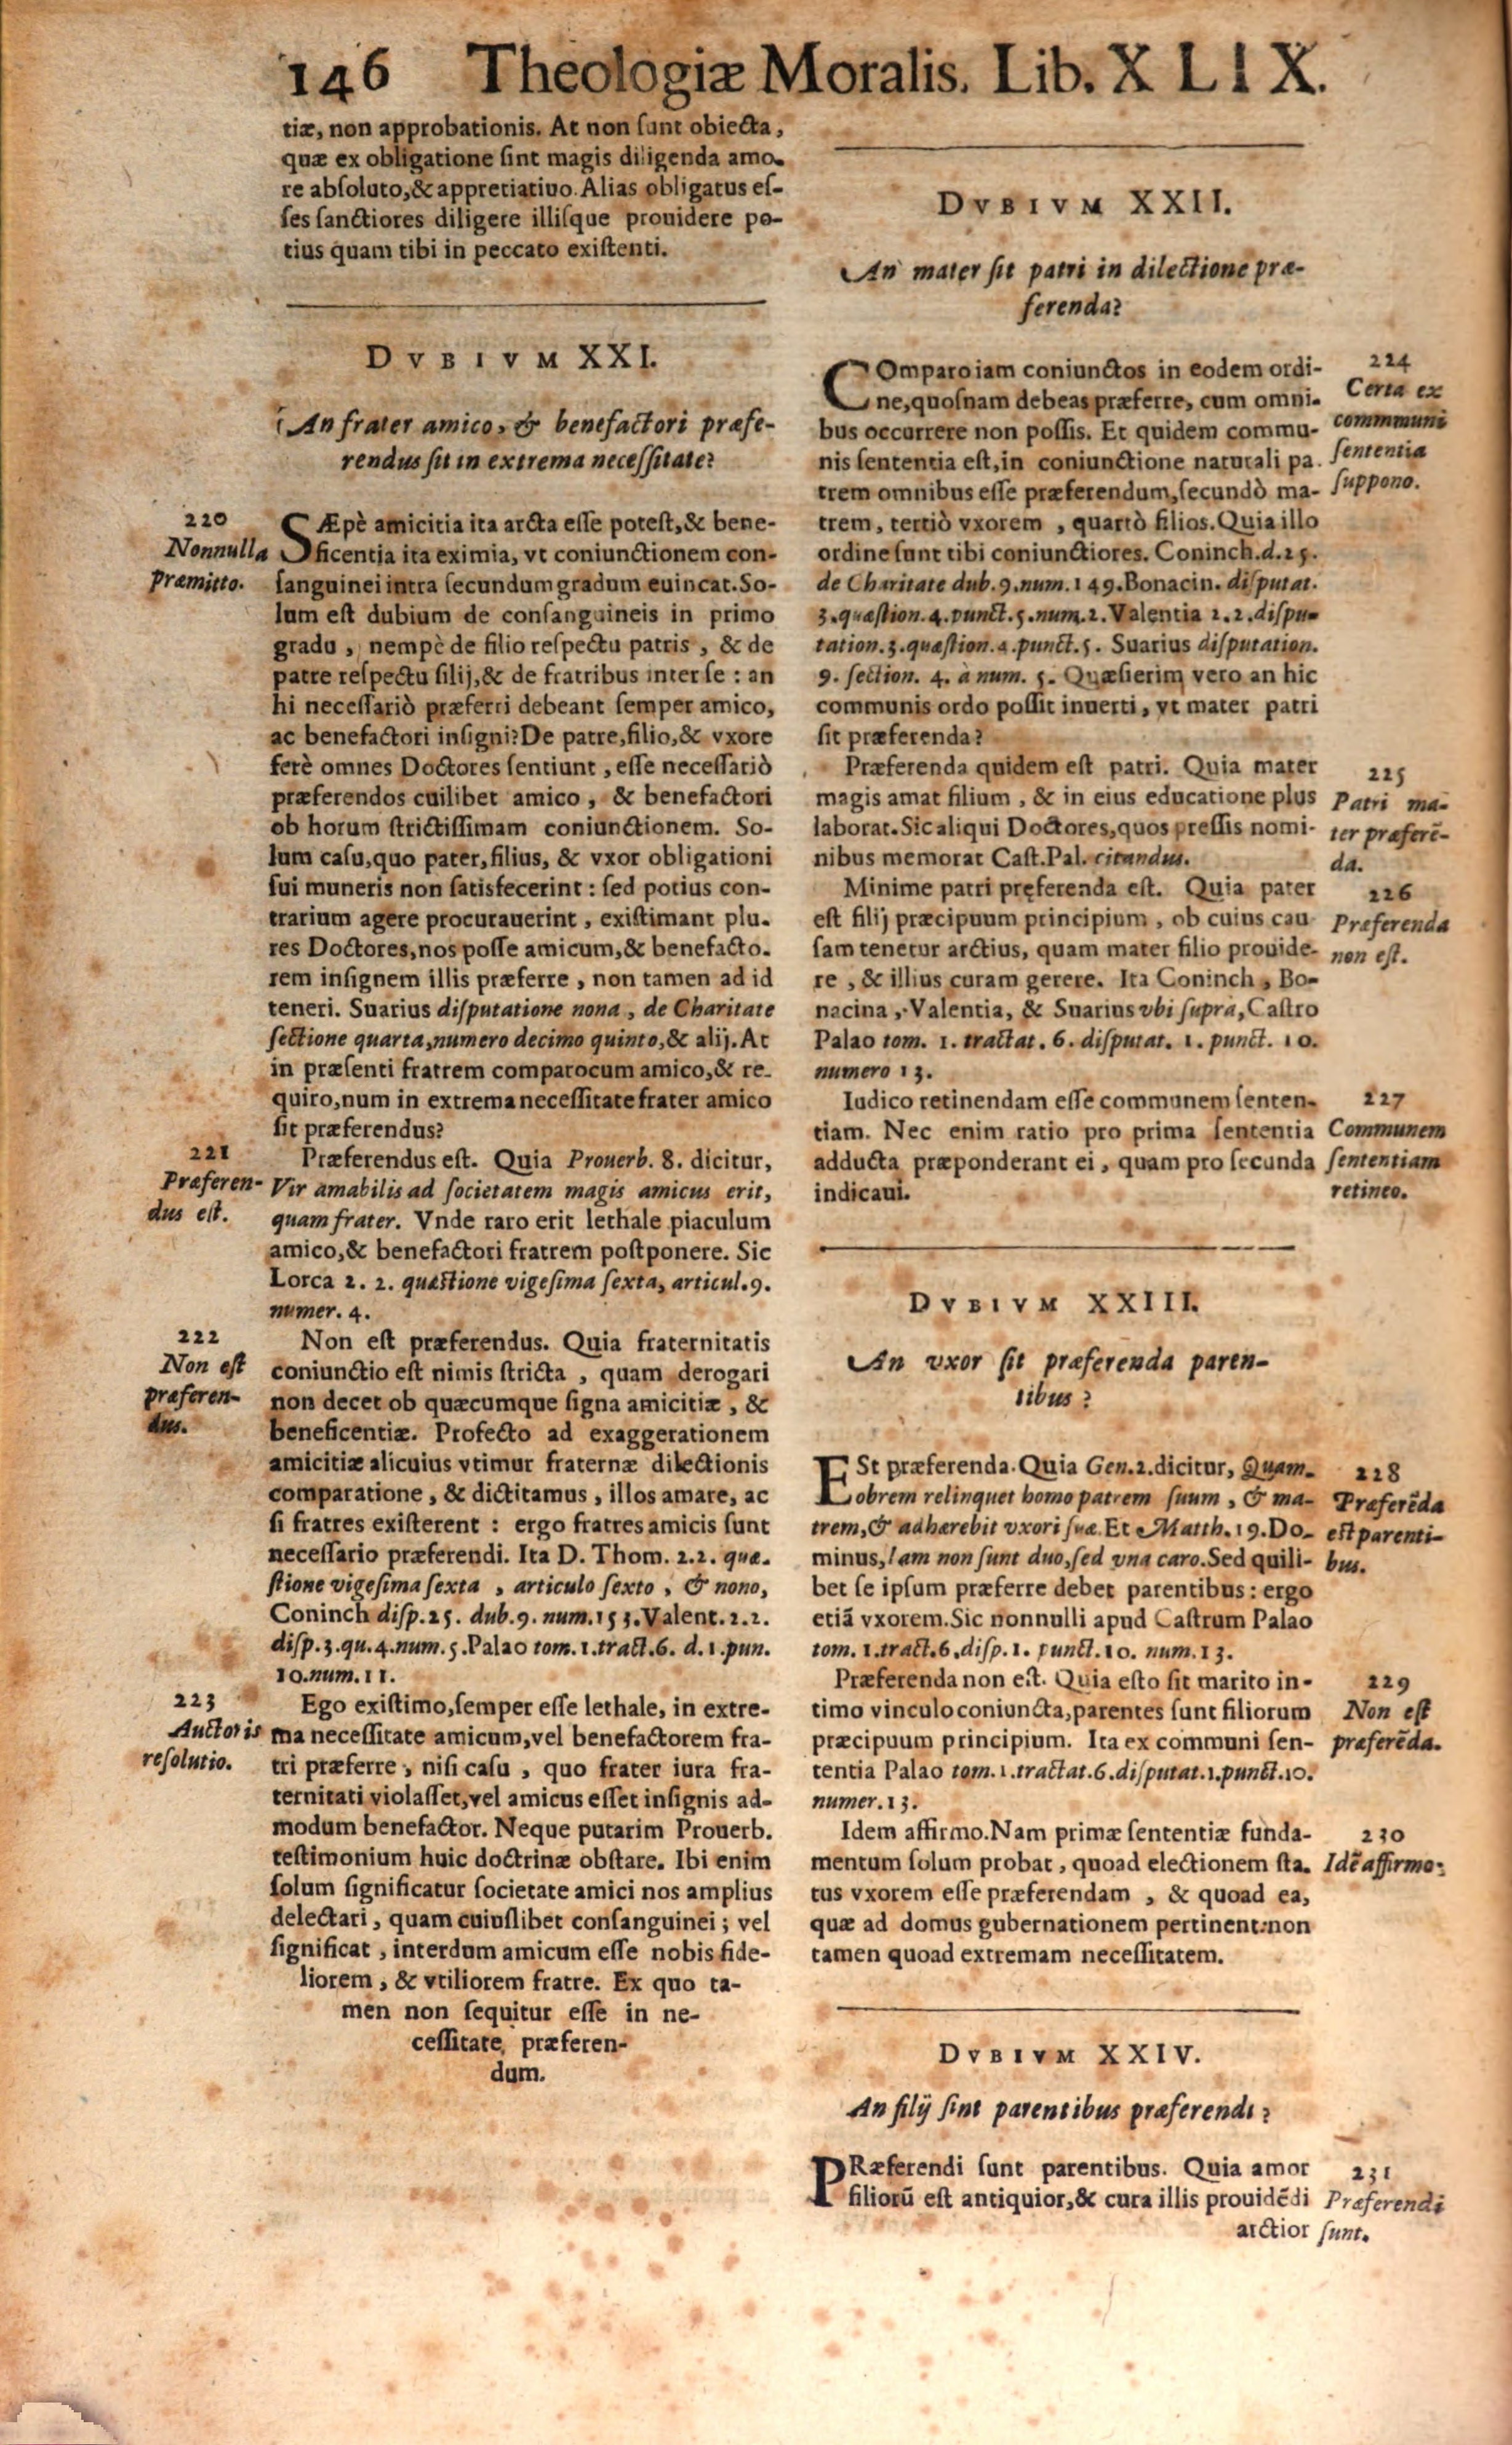 146 Theologiæ Moralis. Lib. XLIX.
tiæ, non approbationis. At non sunt obiecta,
quæ ex obligatione sint magis diligenda amo-
re absoluto,& appretiatiuo. Alias obligatus es-
ses sanctiores diligere illisque prouidere po-
tius quam tibi in peccato existenti.
DVBIVM XXI.
An frater amico, & benefactori præfe-
rendus sit in extrema necessitate?
220
Nonnulla
præmitto.
SÆpè amicitia ita arcta esse potest,& bene-
ficentia ita eximia, vt coniunctionem con-
sanguinei intra secundum gradum euincat. So-
lum est dubium de consanguineis in primo
gradu , nempè de filio respectu patris , & de
patre respectu filij,& de fratribus inter se : an
hi necessariò præferri debeant semper amico,
ac benefactori insigni? De patre,filio,& vxore
ferè omnes Doctores sentiunt , esse necessariò
præferendos cuilibet amico , & benefactori
ob horum strictissimam coniunctionem. So-
lum casu,quo pater,filius, & vxor obligationi
sui muneris non satisfecerint : sed potius con-
trarium agere procurauerint , existimant plu-
res Doctores,nos posse amicum,& benefacto-
rem insignem illis præferre , non tamen ad id
teneri. Suarius disputatione nona , de Charitate
sectione quarta,numero decimo quinto,& alij. At
in præsenti fratrem comparo cum amico,& re-
quiro,num in extrema necessitate frater amico
sit præferendus?
221
Præferen-
dus est.
Præferendus est. Quia Prouerb. 8. dicitur,
Vir amabilis ad societatem magis amicus erit,
quam frater. Vnde raro erit lethale piaculum
amico,& benefactori fratrem postponere. Sic
Lorca 2. 2. quæstione vigesima sexta, articul.9.
numer. 4.
222
Non est
præferen-
dus.
Non est præferendus. Quia fraternitatis
coniunctio est nimis stricta , quam derogari
non decet ob quæcumque signa amicitiæ , &
beneficentiæ. Profecto ad exaggerationem
amicitiæ alicuius vtimur fraternæ dilectionis
comparatione , & dictitamus , illos amare, ac
si fratres existerent : ergo fratres amicis sunt
necessario præferendi. Ita D. Thom. 2.2. quæ-
stione vigesima sexta , articulo sexto , & nono,
Coninch disp.25. dub.9. num.153. Valent.2.2.
disp.3.qu.4.num.5. Palao tom.1.tract.6. d.1.pun.
10.num.11.
223
Auctoris
resolutio.
Ego existimo,semper esse lethale, in extre-
ma necessitate amicum,vel benefactorem fra-
tri præferre , nisi casu , quo frater iura fra-
ternitati violasset,vel amicus esset insignis ad-
modum benefactor. Neque putarim Prouerb.
testimonium huic doctrinæ obstare. Ibi enim
solum significatur societate amici nos amplius
delectari , quam cuiuslibet consanguinei ; vel
significat , interdum amicum esse nobis fide-
liorem , & vtiliorem fratre. Ex quo ta-
men non sequitur esse in ne-
cessitate præferen-
dum.
DVBIVM XXII.
An mater sit patri in dilectione præ-
ferenda?
224
Certa ex
commmuni
sententia
suppono.
COmparo iam coniunctos in eodem ordi-
ne,quosnam debeas præferre, cum omni-
bus occurrere non possis. Et quidem commu-
nis sententia est,in coniunctione naturali pa-
trem omnibus esse præferendum,secundò ma-
trem , tertiò vxorem , quartò filios. Quia illo
ordine sunt tibi coniunctiores. Coninch.d.25.
de Charitate dub.9.num.149. Bonacin. disputat.
3.quæstion.4.punct.5.num.2. Valentia 2.2.dispu-
tation.3.quæstion.4.punct.5. Suarius disputation.
9. section. 4. à num. 5. Quæsierim vero an hic
communis ordo possit inuerti , vt mater patri
sit præferenda?
225
Patri ma-
ter præferē-
da.
Præferenda quidem est patri. Quia mater
magis amat filium , & in eius educatione plus
laborat. Sic aliqui Doctores,quos pressis nomi-
nibus memorat Cast. Pal. citandus.
226
Præferenda
non est.
Minime patri pręferenda est. Quia pater
est filij præcipuum principium , ob cuius cau
sam tenetur arctius, quam mater filio prouide-
re , & illius curam gerere. Ita Coninch , Bo-
nacina , Valentia, & Suarius vbi suprà, Castro
Palao tom. 1. tractat. 6. disputat. 1. punct. 10.
numero 13.
227
Communem
sententiam
retineo.
Iudico retinendam esse communem senten-
tiam. Nec enim ratio pro prima sententia
adducta præponderant ei , quam pro secunda
indicaui.
DVBIVM XXIII.
An vxor sit præferenda paren-
tibus ?
228
Præferēda
est parenti-
bus.
ESt præferenda. Quia Gen.2.dicitur, Quam-
obrem relinquet homo patrem suum , & ma-
trem,& adhærebit vxori suæ. Et Matth. 19. Do-
minus, Iam non sunt duo,sed vna caro. Sed quili-
bet se ipsum præferre debet parentibus : ergo
etiā vxorem. Sic nonnulli apud Castrum Palao
tom. 1.tract.6.disp.1. punct.10. num.13.
229
Non est
præferēda.
Præferenda non est. Quia esto sit marito in-
timo vinculo coniuncta,parentes sunt filiorum
præcipuum principium. Ita ex communi sen-
tentia Palao tom.1.tractat.6.disputat.1.punct.10.
numer.13.
230
Idē affirmo.
Idem affirmo. Nam primæ sententiæ funda-
mentum solum probat , quoad electionem sta-
tus vxorem esse præferendam , & quoad ea,
quæ ad domus gubernationem pertinent: non
tamen quoad extremam necessitatem.
DVBIVM XXIV.
An filij sint parentibus præferendi ?
231
Præferendi
sunt.
PRæferendi sunt parentibus. Quia amor
filiorū est antiquior,& cura illis prouidēdi
arctior